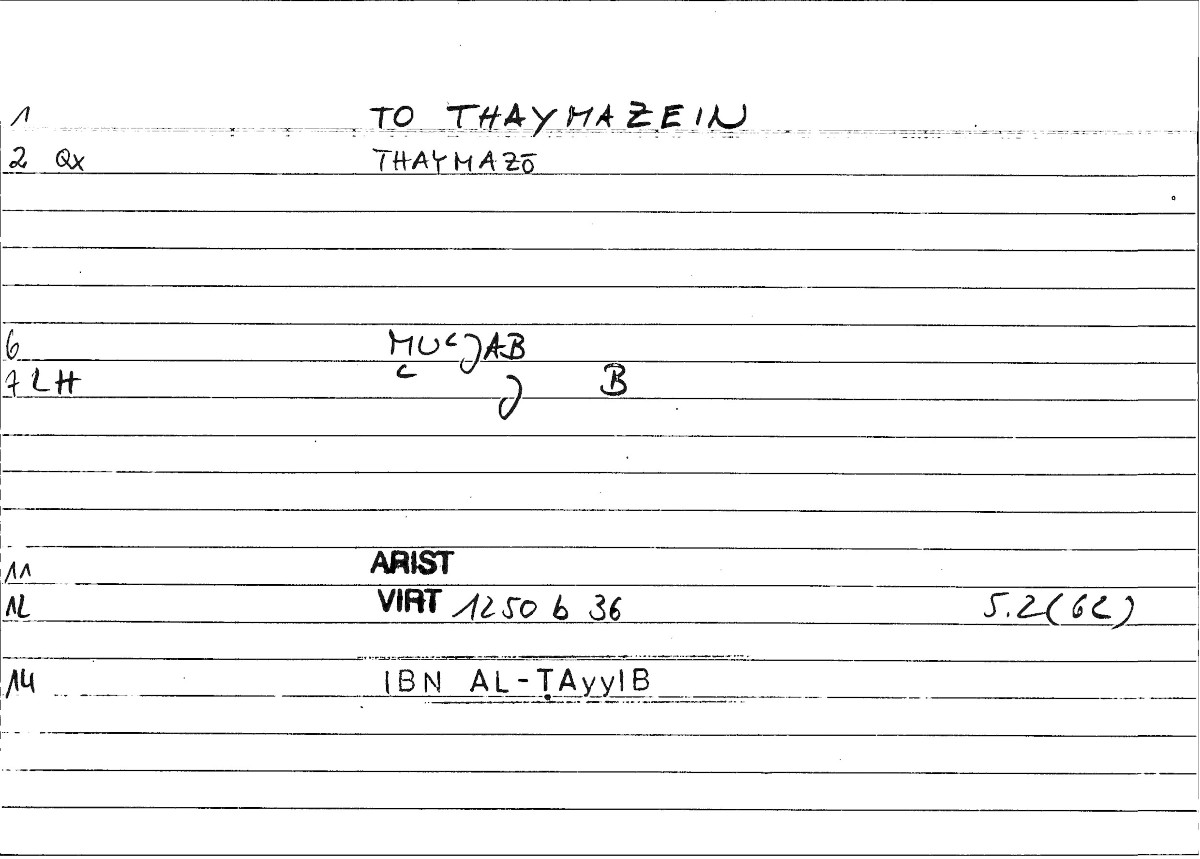 1 TO THAYMAZEIN
2 Qx THAYMAZŌ
6 MUᶜJAB
7 LH ᶜ J B
11 ARIST
12 VIRT 1250 b 36 5.2(62)
14 IBN AL-ṬAyyIB